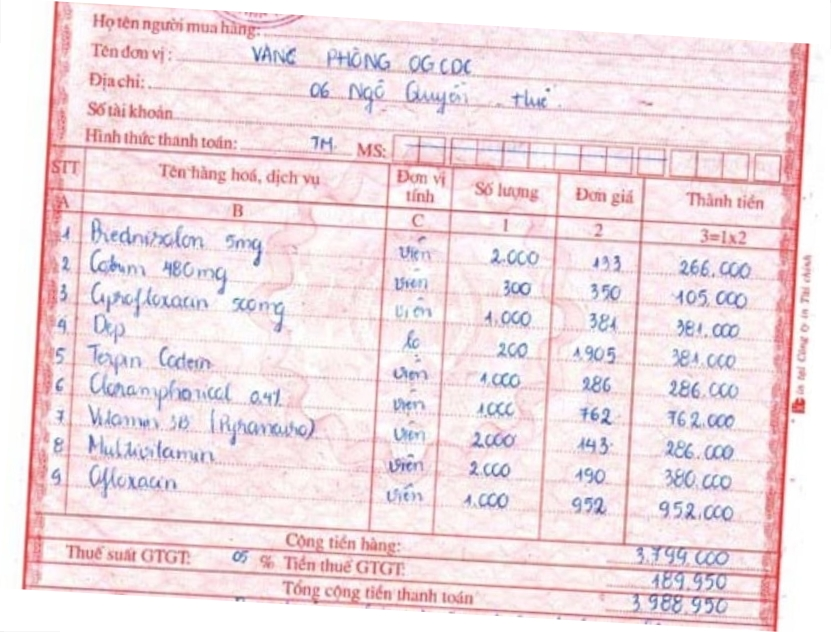 Họ tên người mua hàng:
Tên đơn vị: VĂNG PHÒNG OGCDC
Địa chỉ: 06 Ngô Quyền - Huế
Số tài khoản
Hình thức thanh toán: TM. MS:
STT Tên hàng hoá, dịch vụ Đơn vị tính Số lượng Đơn giá Thành tiền
A B C 1 2 3=1x2
1 Prednizolon 5mg viên 2.000 133 266.000
2 Cotrim 480mg viên 300 350 105.000
3 Ciprofloxacin 500mg viên 1.000 381 381.000
4 Dep lọ 200 1.905 381.000
5 Terpin Codein viên 1.000 286 286.000
6 Cloramphenical 0.4% viên 1.000 762 762.000
7 Vitamin 3B viên 2000 143 286.000
8 Multivitamin viên 2.000 190 380.000
9 Ofloxacin viên 1.000 952 952.000
Cộng tiền hàng: 3.799.000
Thuế suất GTGT: 05 % Tiền thuế GTGT: 189.950
Tổng cộng tiền thanh toán 3.988.950
in tại Công ty in Tài chính